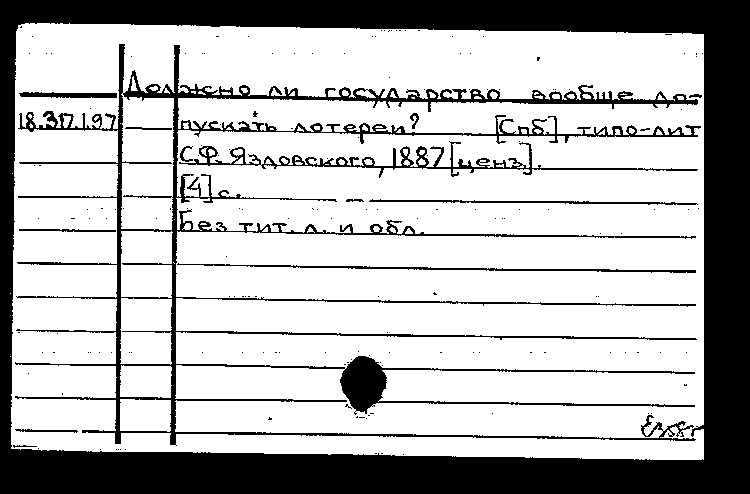 Должно ли государство вообще до-
18.317.1.97 пускать лотереи? [Спб.], типо-лит
С.Ф. Яздовского, 1887 [ценз].
[4] с.
Без тит. л. и обл.